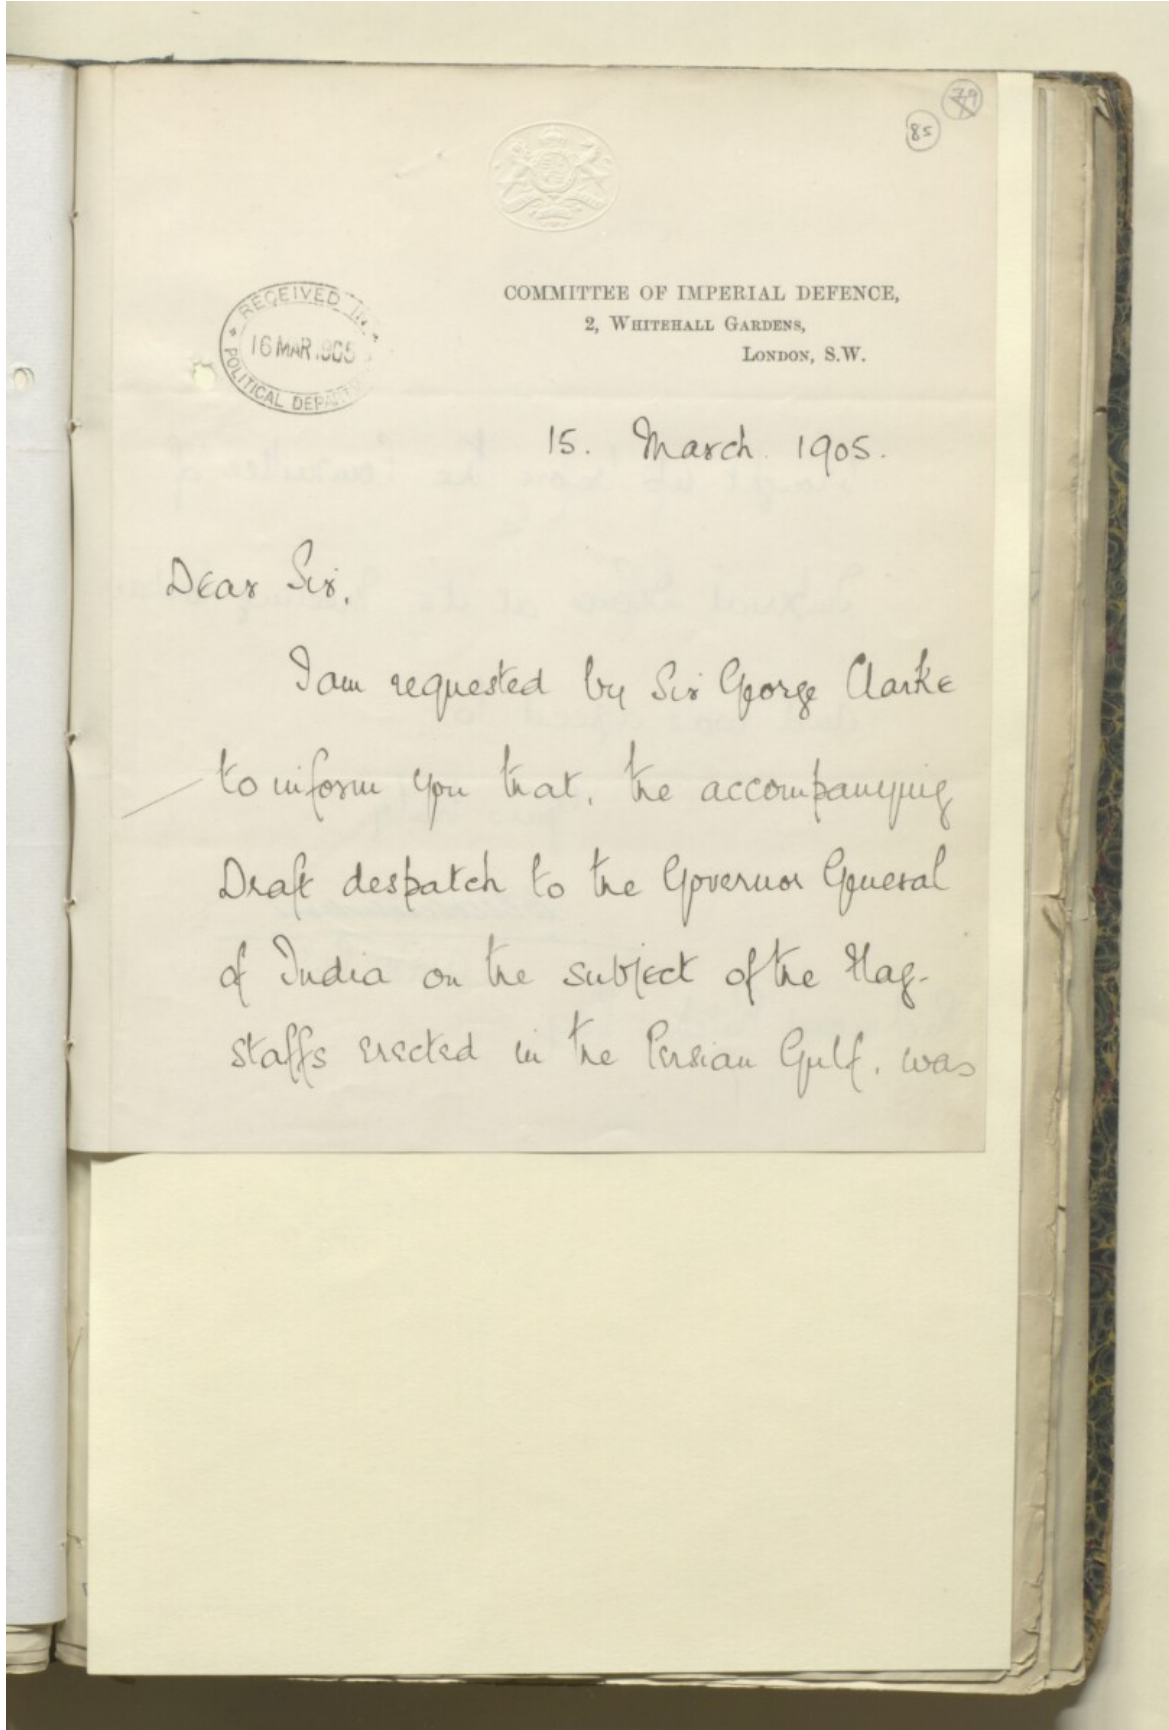 79
85
RECEIVED IN
16 MAR 1905
POLITICAL DEPARTMENT
COMMITTEE OF IMPERIAL DEFENCE,
2, WHITEHALL GARDENS,
LONDON, S.W.
15. March. 1905.
Dear Sir,
I am requested by Sir George Clarke
to inform you that, the accompanying
Draft despatch to the Governor General
of India on the subject of the Flag-
staffs erected in the Persian Gulf, was